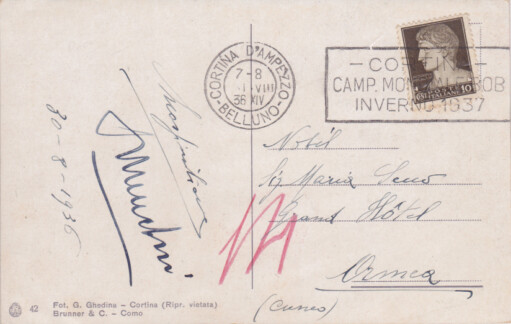 CORTINA D'AMPEZZO
7-8
VIII
36 XIV
-BELLUNO-
- CORTINA -
CAMP. MONDIALE BOB
INVERNO 1937
10
30-8-1936
Nobil
Sig Maria
Grand Hôtel
Ormea
(Cuneo)
42 Fot. G. Ghedina - Cortina (Ripr. vietata)
Brunner & C. - Como